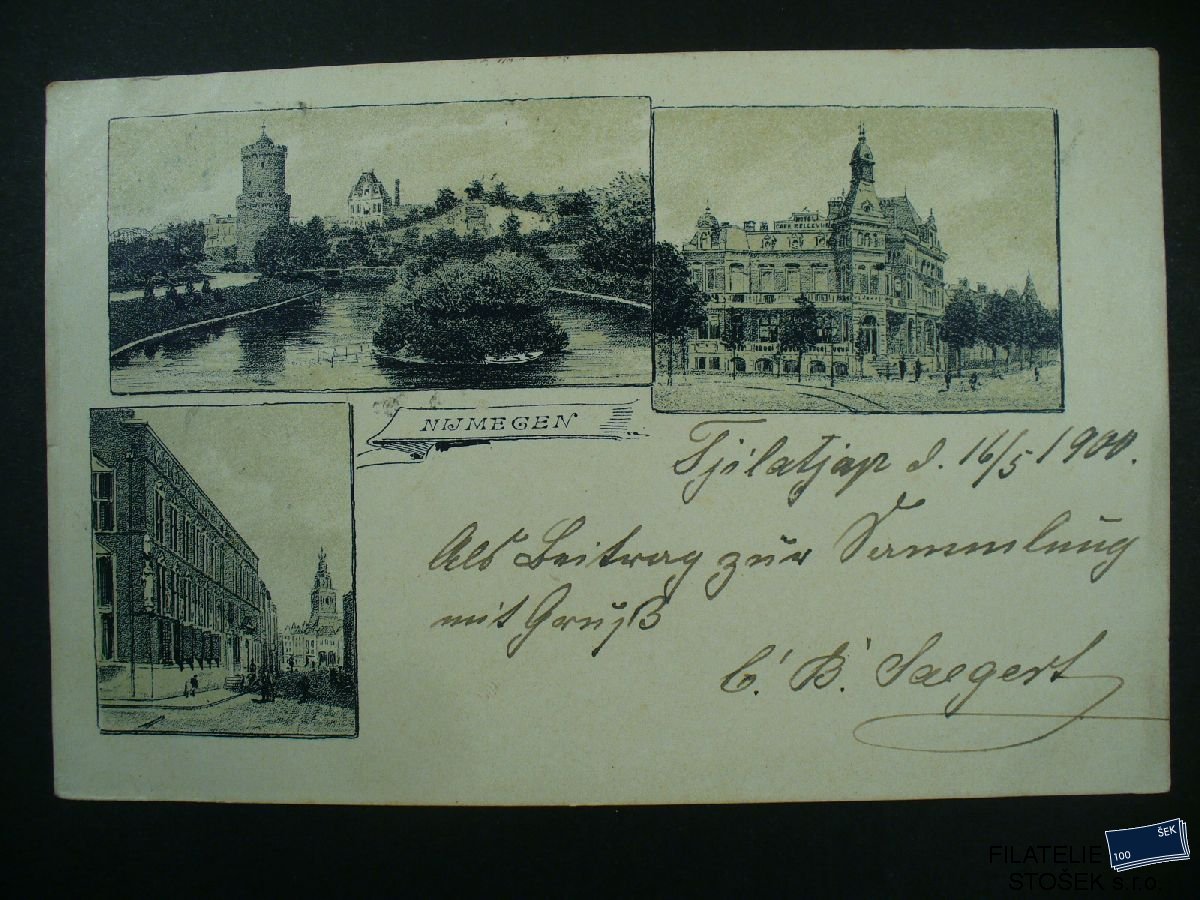 NIJMEGEN
Tjilatjap d. 16/5 1900.
Als Beitrag zur Sammlung
mit Gruß
C. B. Saegert
100 ŠEK
FILATELIE
STOŠEK s.r.o.